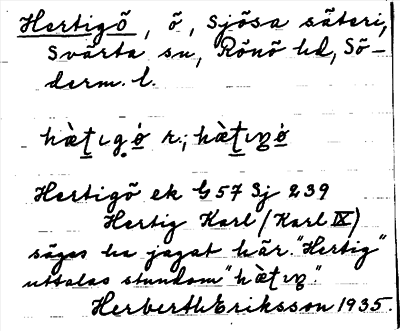 Hertigö, ö, Sjösa säteri,
Svärta sn, Rönö hd, Sö-
derm. l.
hæ̀ʈıgö̀ r.; hæ̀ʈıŋö̀
Hertigö ek G 57 Sj 239
Hertig Karl (Karl IX)
säges ha jagat här. "Hertig"
uttalas stundom "hæ̀ʈıŋ".
Herberth Eriksson 1935.